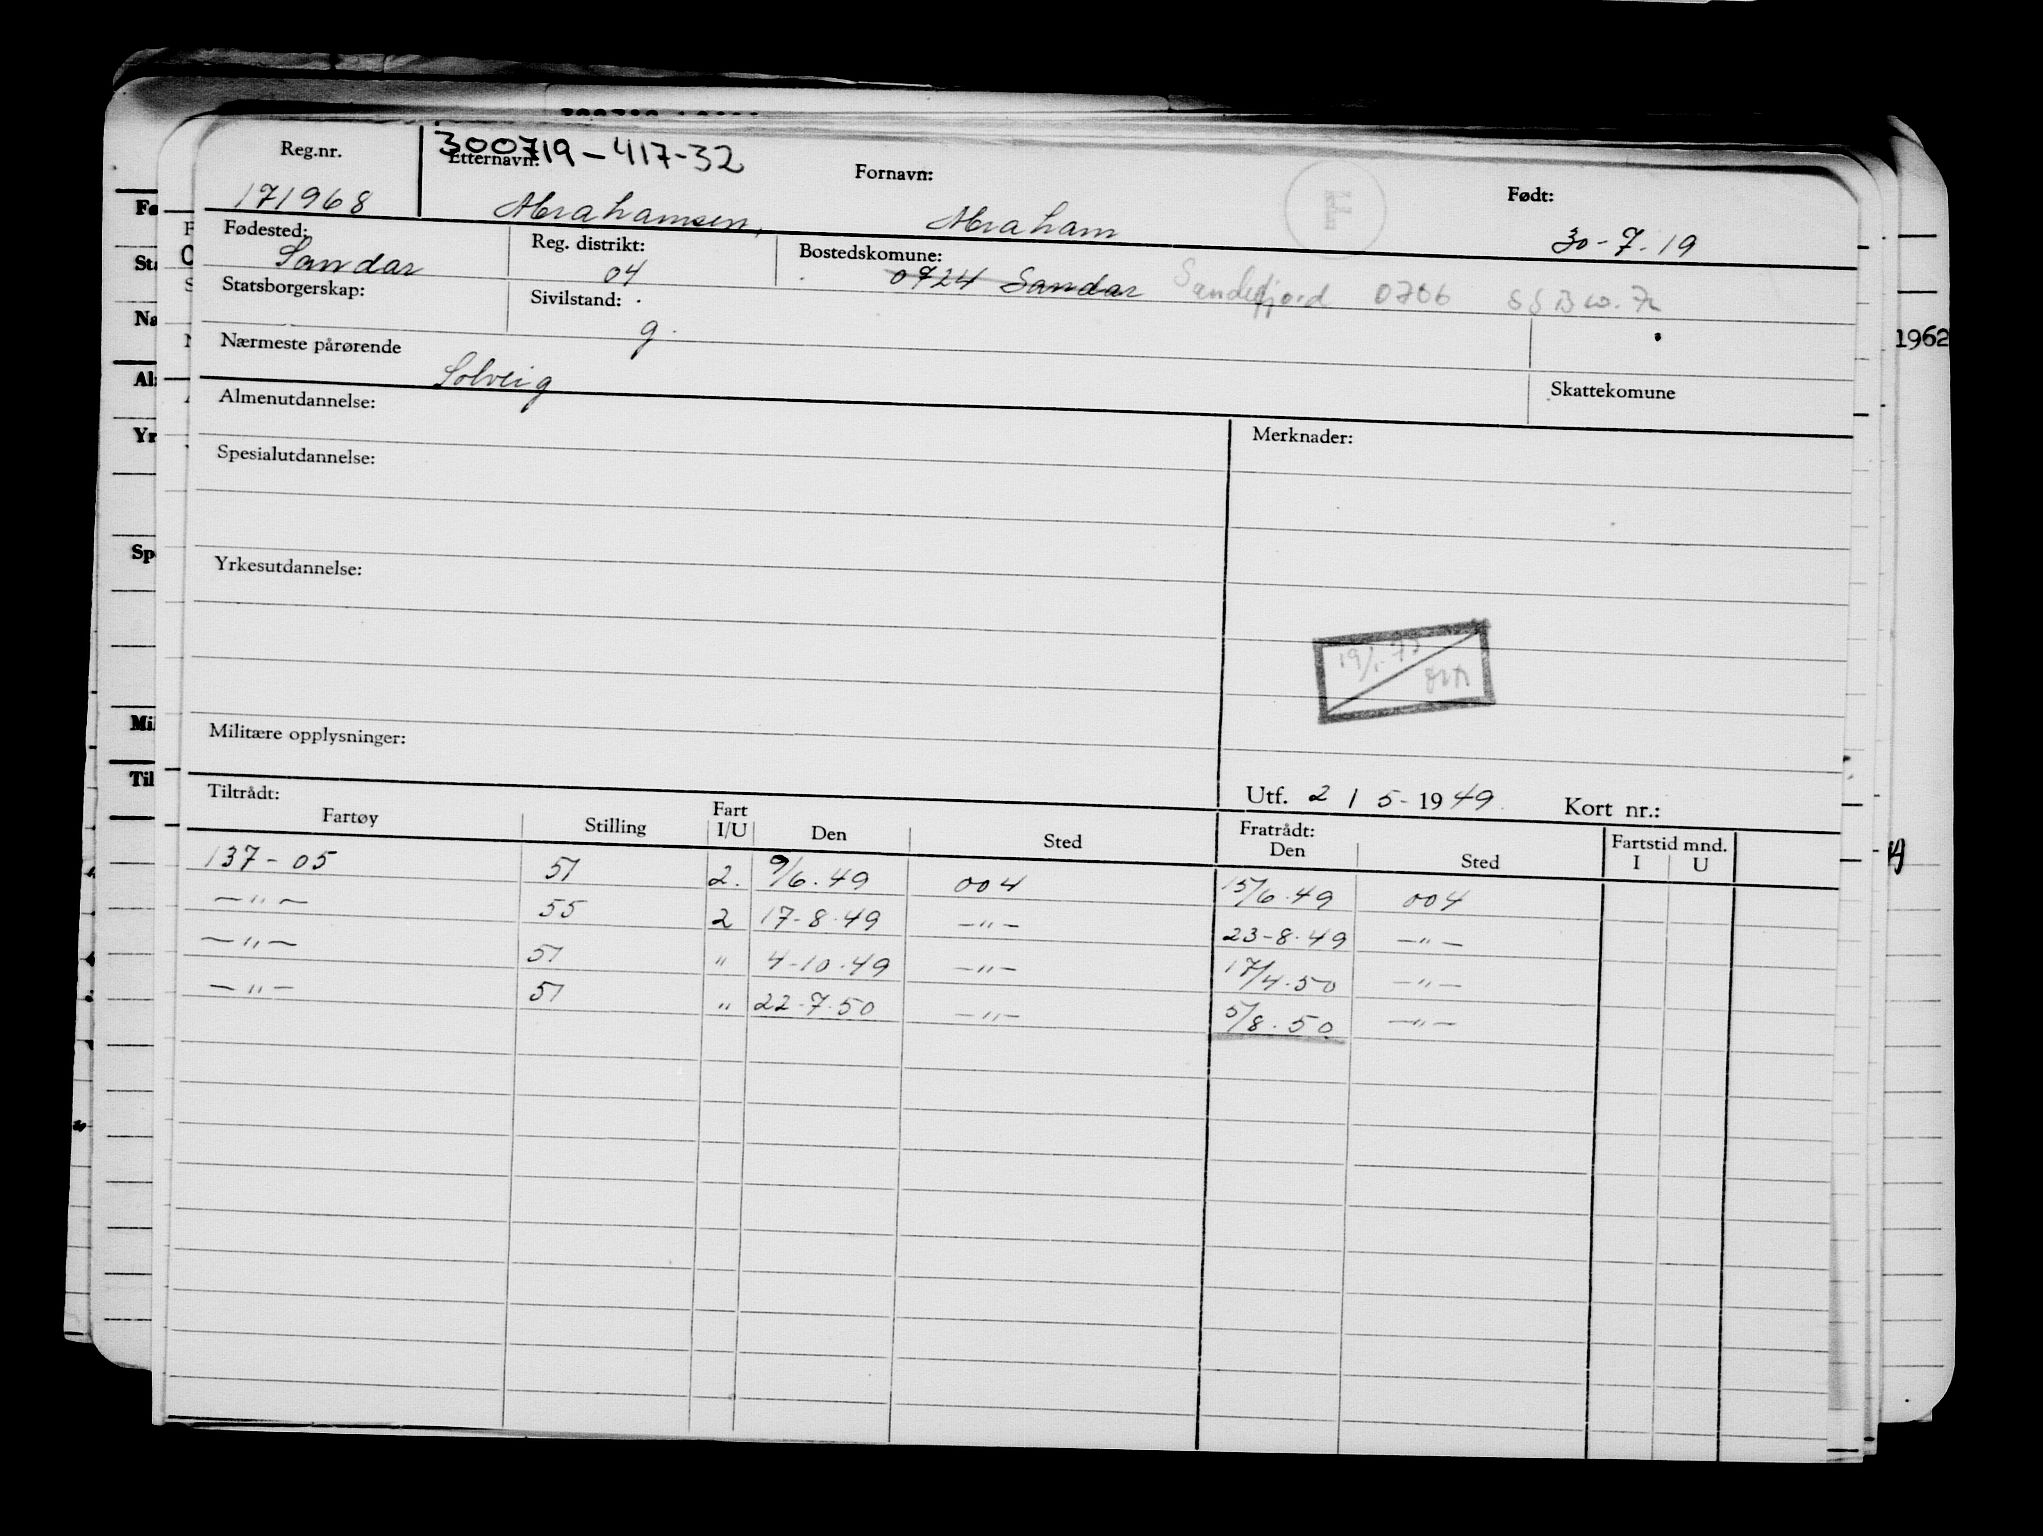 Reg.nr. 300719-417-32
Etternavn: Fornavn: Født:
171968 Abrahamsen, Abraham F 30-7-19
Fødested: Reg. distrikt: Bostedskomune:
Sandar 04 0724 Sandar Sandefjord 0706
Statsborgerskap: Sivilstand:
g.
Nærmeste pårørende
Solveig
Skattekomune
Almenutdannelse: Merknader:
Spesialutdannelse:
Yrkesutdannelse:
Militære opplysninger:
Utf. 2 / 5 - 1949. Kort nr.:
Tiltrådt: Fratrådt: Fartstid mnd.
Fartøy Stilling Fart I/U Den Sted Den Sted I U
137-05 51 2. 9/6.49 004 15/6.49 004
—"— 55 2 17-8.49 —"— 23-8.49 —"—
—"— 51 " 4-10.49 —"— 17/4.50 —"—
—"— 51 " 22-7.50 —"— 5/8.50 —"—
1962